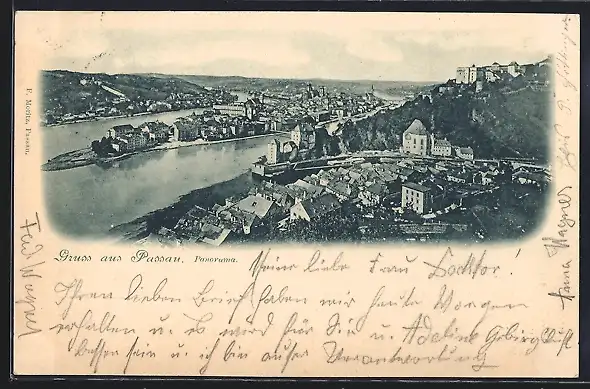 F. Moritz, Passau.
Gruss aus Passau. Panorama.
Meine liebe Frau Docktor!
Ihren lieben Brief haben wir heute Morgen
erhalten u. es wird für Sie u. Adeline Gebirgsluft
besser sein u. ich bin außer Verantwortung
Ferd Wagner
Anna Wagner